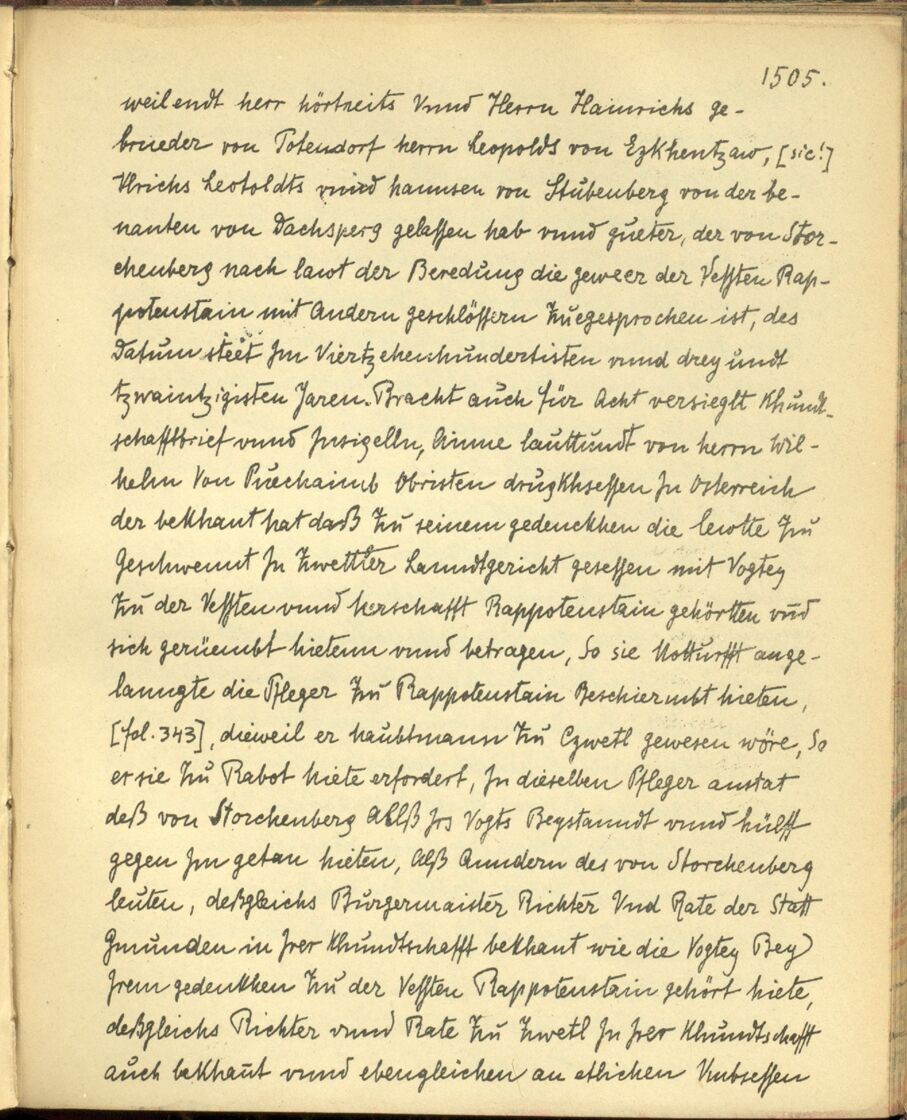 1505.
weilendt herr hörtneits vnnd Herrn Hainrichs ge-
brueder von Potendorf herrn Leopolds von Ezkhentzaw, [sic!]
Ulrichs Leotoldts vnnd hannsen von Stubenberg von der be-
nanten von Dachsperg gelassen hab vnnd gueter, der von Stor-
chenberg nach lawt der Beredung die geweer der Vessten Rap-
potenstain mit Andern geschlössern Zuegesprochen ist, des
Datum steet Jm Viertzehenhundertisten vnnd drey undt
tzwaintzigisten Jaren. Bracht auch für Acht versieglt Khundt-
schafftbrief vnnd Jnsigelln, Ainne lauttundt von herrn Wil-
helm Von Puechaimb Obristen drugkhsessen Jn Osterreich
der bekhant hat daß Zu seinem gedenckhen die lewtte Zu
Geschwennt Jn Zwettler Lanndtgericht gesessen mit Vogtey
Zu der Vessten vnnd herschafft Rappotenstain gehörtten vnd
sich gerüembt hietenn vnnd betragen, So sie Notturfft ange-
lanngte die Pfleger Zu Rappotenstain Beschiermbt hieten,
[fol. 343], dieweil er haubtmann Zu Czwetl gewesen wöre, So
er sie Zu Rabot hiete erfordert, Jn dieselben Pfleger anstat
deß von Storchenberg Allß Jrs Vogts Beystanndt vnnd hülff
gegen Jm getan hieten, Alß Anndern des von Storchenberg
leuten, deßgleichs Burgermaister Richter Vnd Rate der Statt
Gmunden in Jrer Khundtschafft bekhant wie die Vogtey Bey
Jrem gedenkhen Zu der Vessten Rappotenstain gehört hiete,
deßgleichs Richter vnnd Rate Zu Zwetl Jn Jrer Khundtschafft
auch bekhaut vnnd ebengleichen an etlichen Vmbsessen